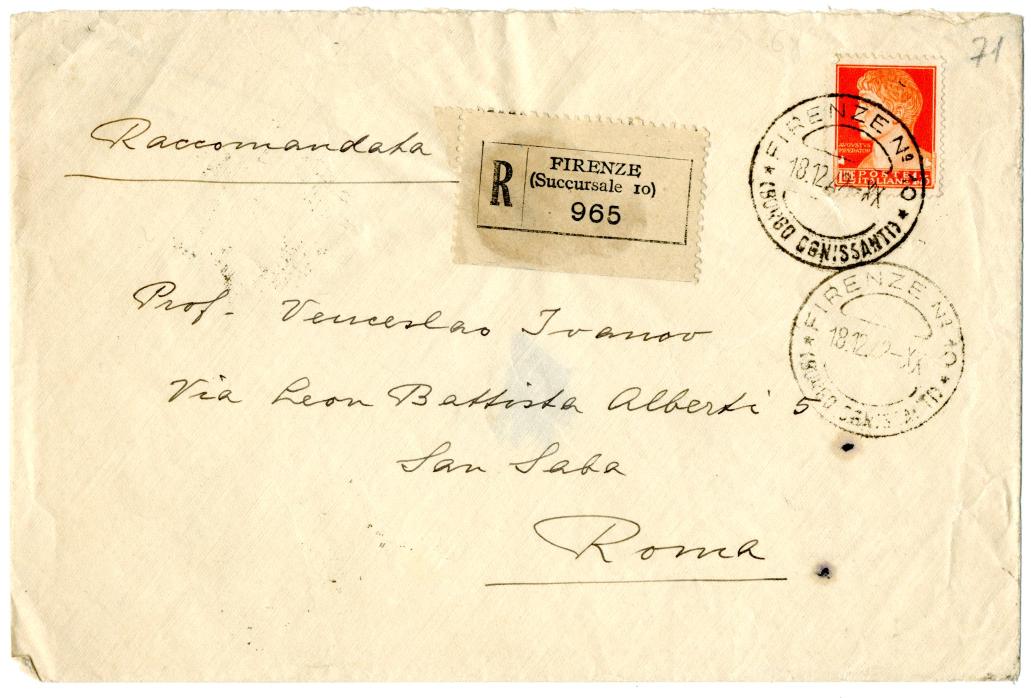 71
Raccomandata
R
FIRENZE
(Succursale 10)
965
AVGVSTVS
IMPERATOR
POSTE
ITALIANE
FIRENZE Nº 10
18.12.42-XX
(BORGO OGNISSANTI)
Prof. Venceslao Ivanov
FIRENZE Nº 10
18.12.42-XX
(BORGO OGNISSANTI)
Via Leon Battista Alberti 5
San Saba
Roma